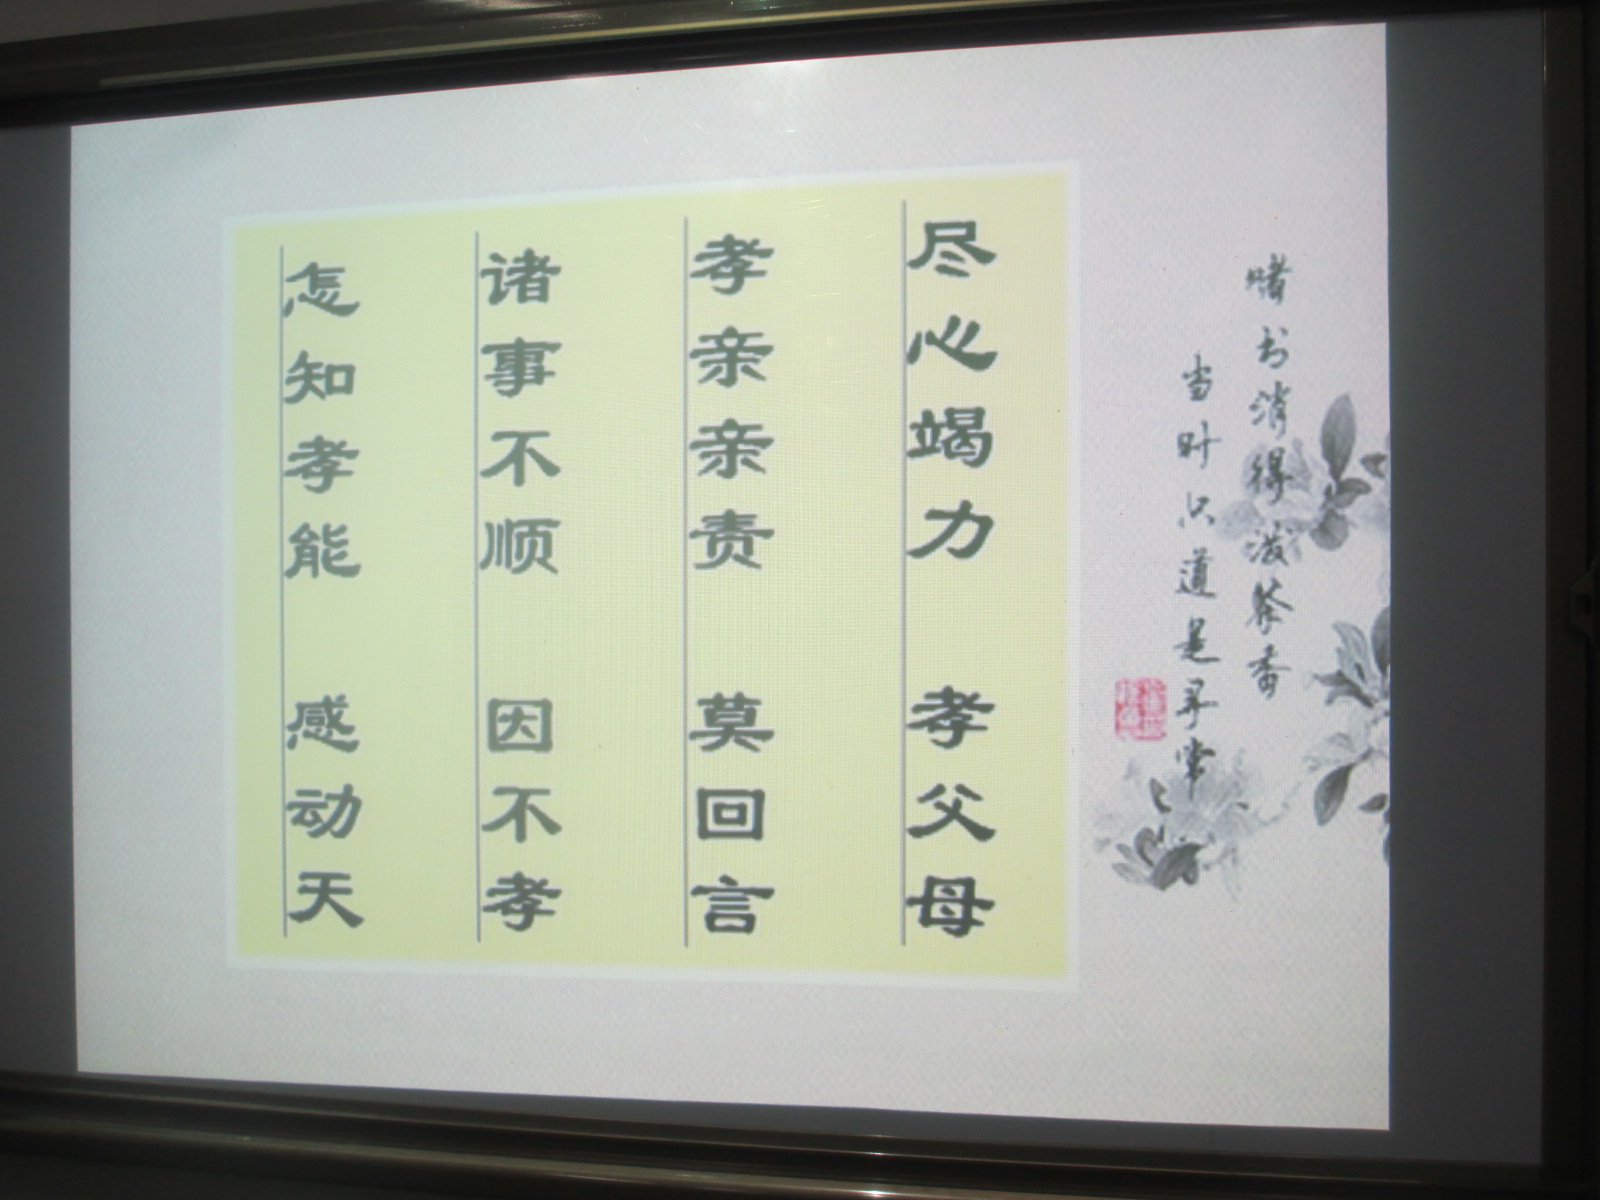 赌书消得泼茶香
当时只道是寻常
尽心竭力 孝父母
孝亲亲责 莫回言
诸事不顺 因不孝
怎知孝能 感动天